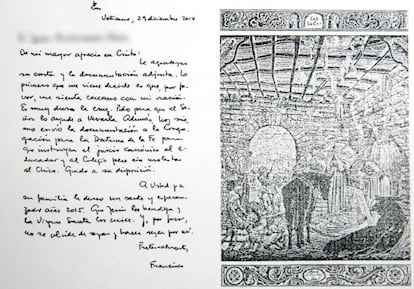 Vaticano, 29 diciembre 2014
De mi mayor aprecio en Cristo:
Le agradezco
su carta y la documentación adjunta. Lo
primero que me viene decirle es que, por
favor, me sienta cercano con mi oración.
Es muy dura la cruz. Pido para que el Se-
ñor lo ayude a llevarla. Además, hoy mis-
mo envío la documentación a la Congre-
gación para la Doctrina de la Fe para
que instruyan el juicio canónico al e-
ducador y al Colegio pero sin molestar
al chico. Quedo a su disposición.
A Usted y a
su familia le deseo un santo y esperan-
zado año 2015. Que Jesús los bendiga y
la Virgen Santa los cuide. Y, por favor,
no se olvide de rezar y hacer rezar por mí.
Fraternalmente,
Francisco